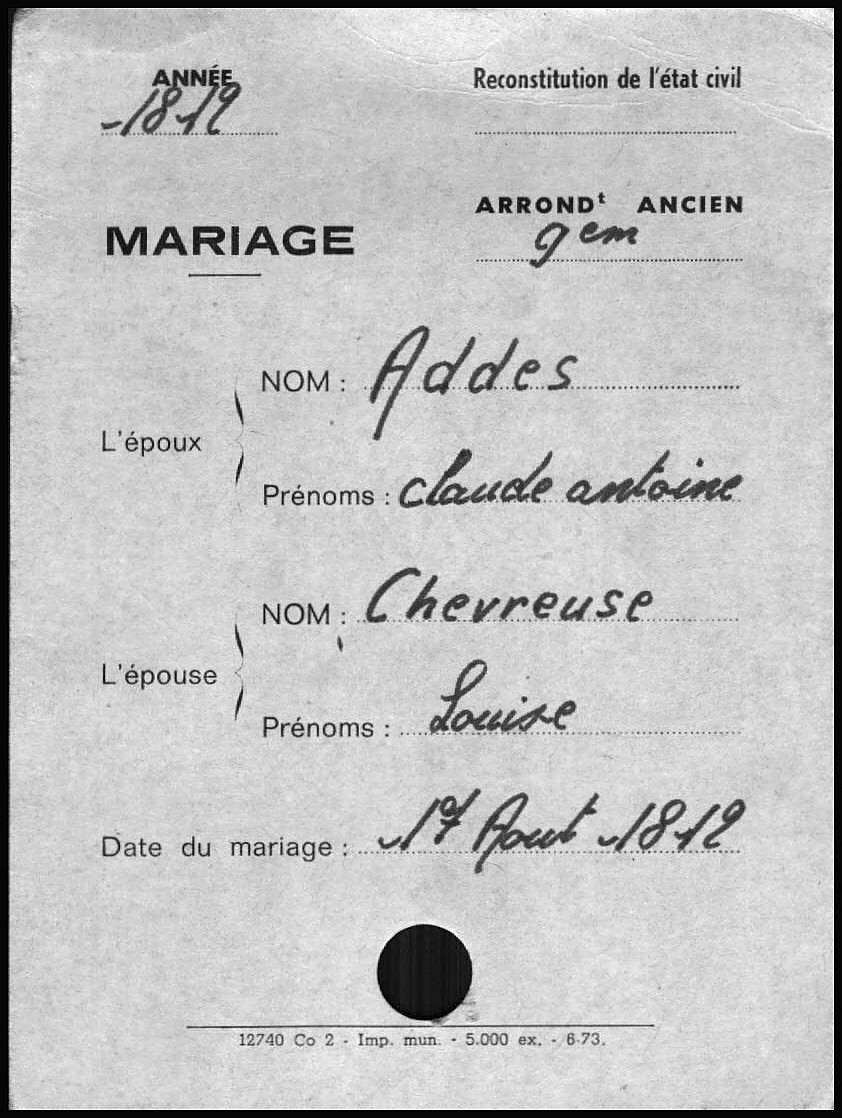 ANNÉE
1812
Reconstitution de l'état civil
ARRONDt ANCIEN
9em
MARIAGE
L'époux
NOM : Addes
Prénoms : Claude antoine
L'épouse
NOM : Chevreuse
Prénoms : Louise
Date du mariage : 17 Aout 1812
12740 Co 2 - Imp. mun. - 5.000 ex. - 6-73.